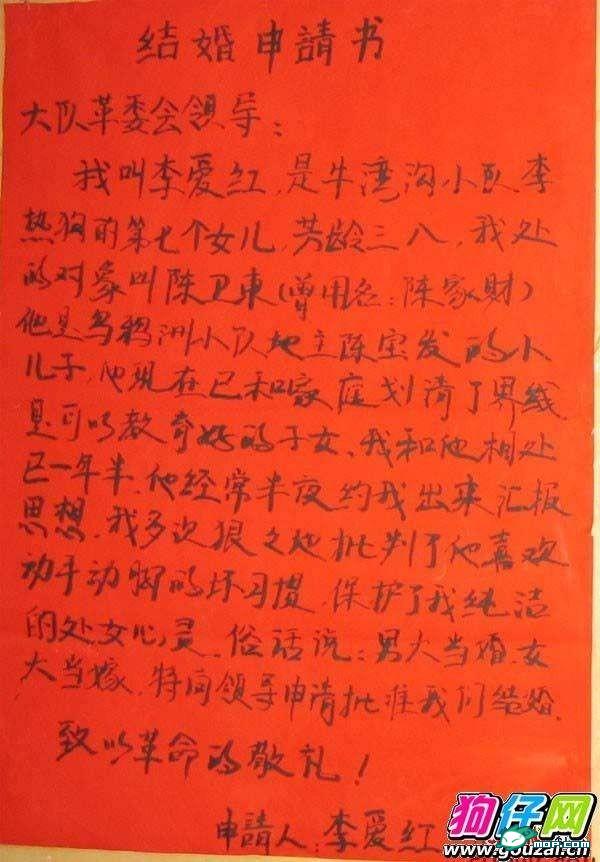 结婚申請书
大队革委会领导：
我叫李爱红，是牛湾沟小队李
热狗的第七个女儿，芳龄三八，我处
的对象叫陈卫東（曾用名：陈家财）
他是乌鸦洲小队地主陈宝发的小
儿子，他現在已和家庭划清了界线
是可以教育好的子女，我和他相处
已一年半，他经常半夜约我出来汇报
思想，我多次狠々地批判了他喜欢
动手动脚的坏习惯，保护了我纯洁
的处女心灵。俗话说：男大当婚，女
大当嫁，特向领导申请批准我们结婚。
致以革命的敬礼！
申請人：李爱红
狗仔网
www.gouzai.cn
mop.com